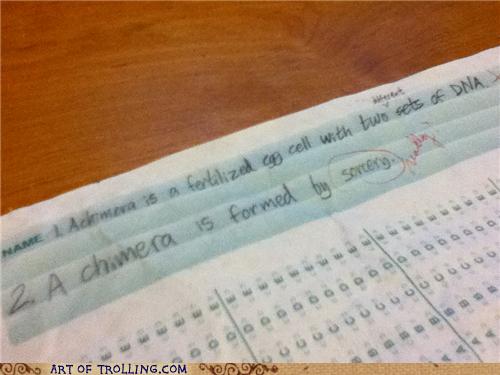 different
NAME 1. A chimera is a fertilized egg cell with two sets of DNA
2. A chimera is formed by sorcery. really?
ART OF TROLLING.COM